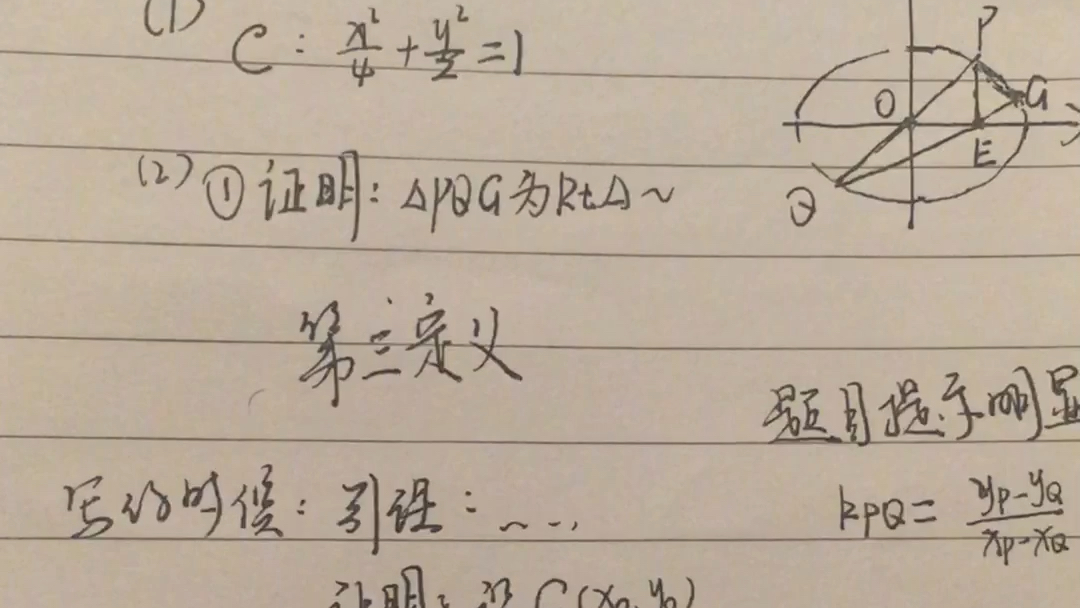 (1) C: x²/4 + y²/2 = 1
P
O
G
E
Q
(2) ① 证明: △PQG为Rt△~
第三定义
题目提示明显
写的时候: 引理: ……
kPQ = (yP-yQ)/(xP-xQ)
证明: 设 C(x₀,y₀)